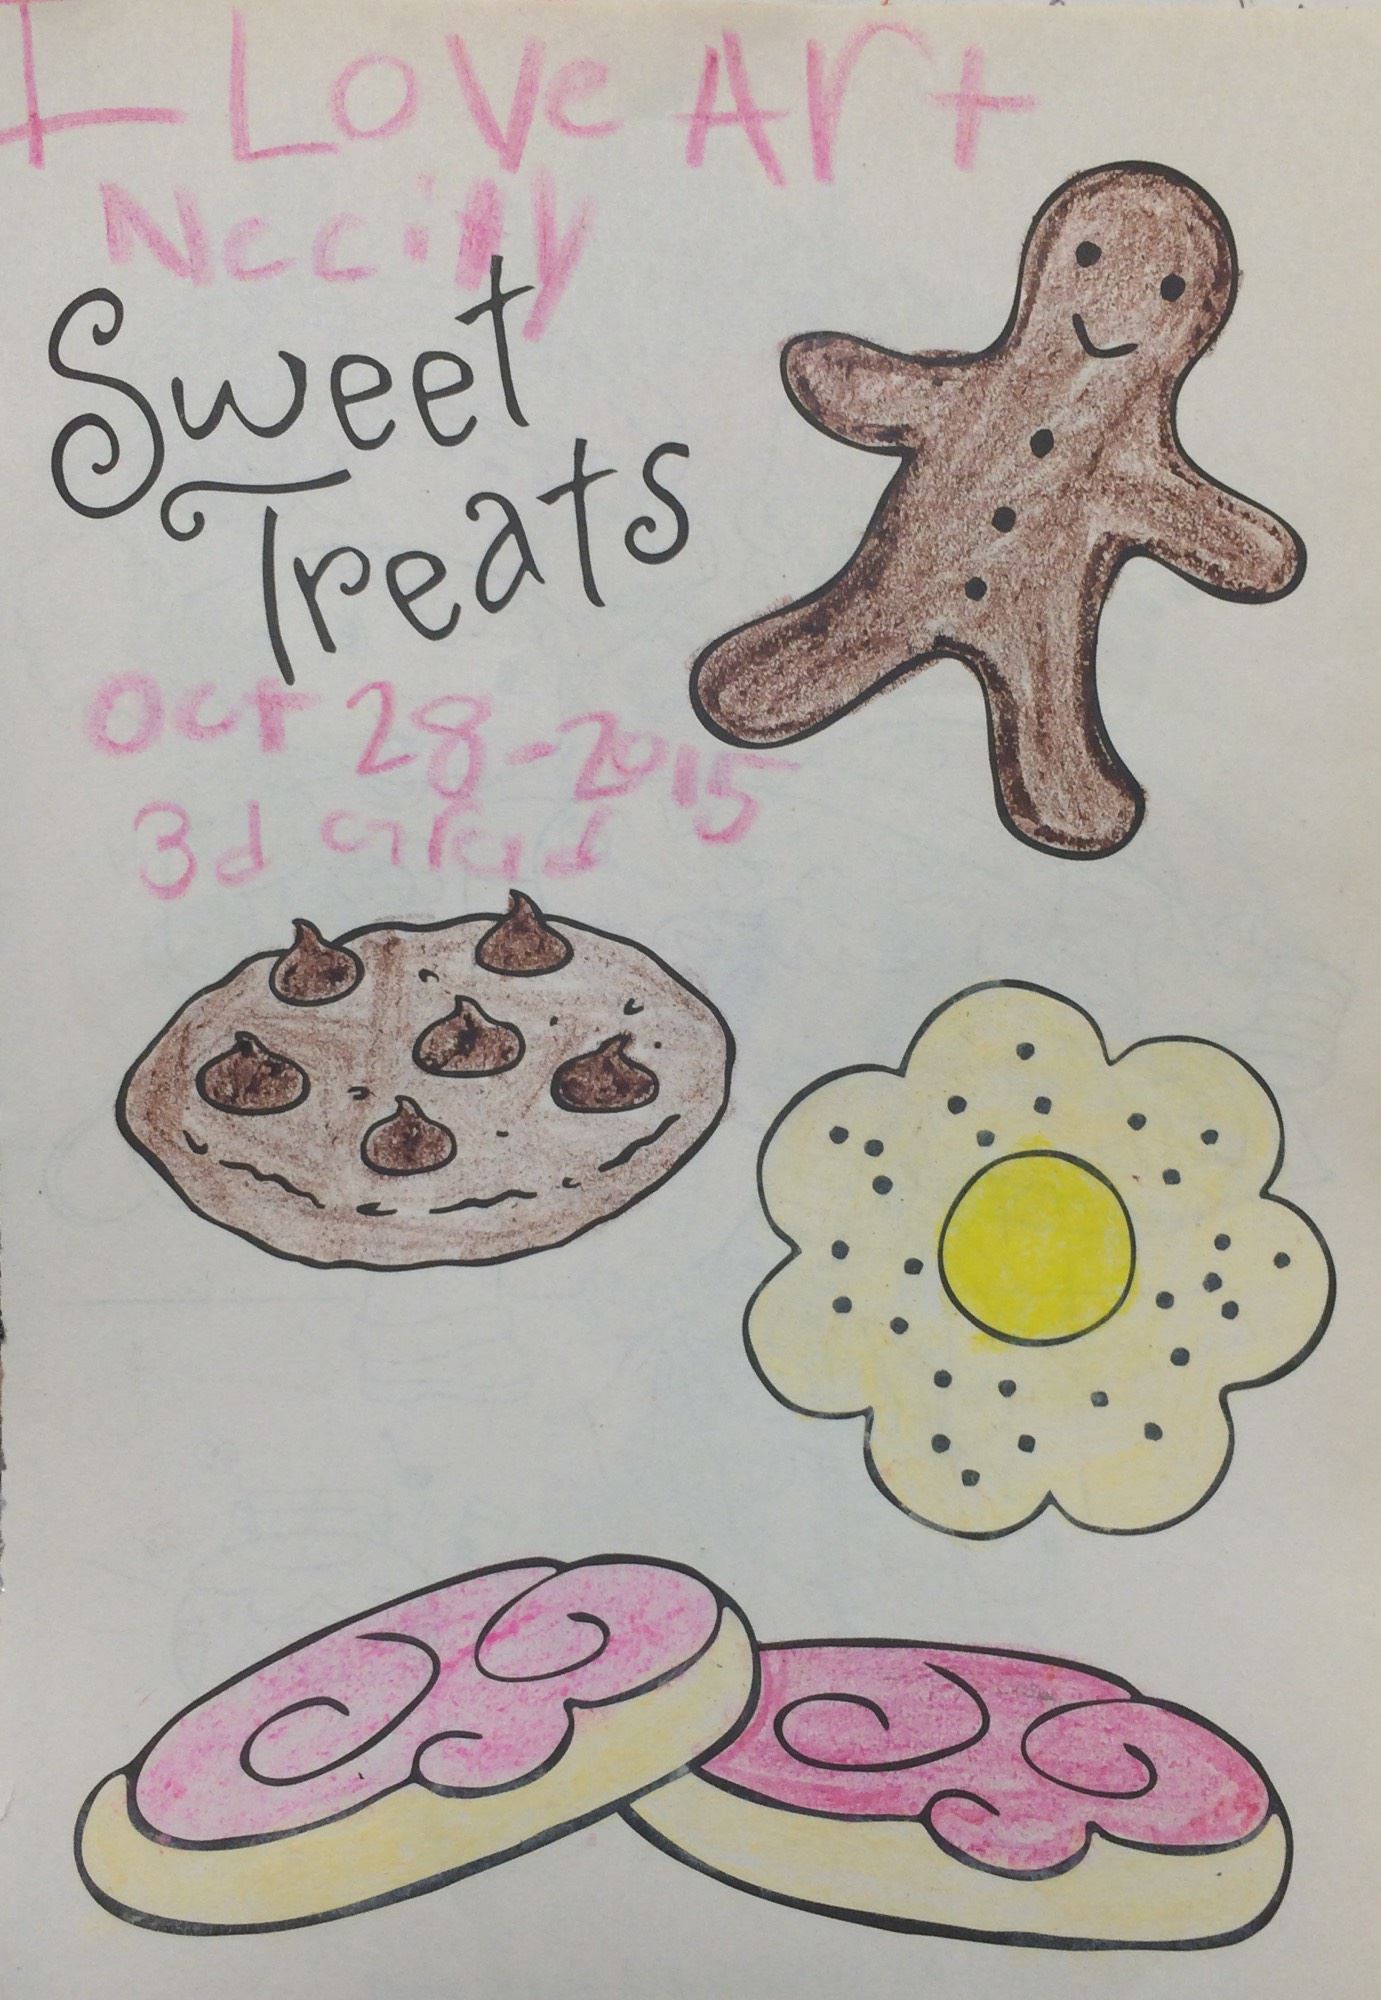 I Love Art
Sweet
Treats
Oct 28-2015
3d Grad